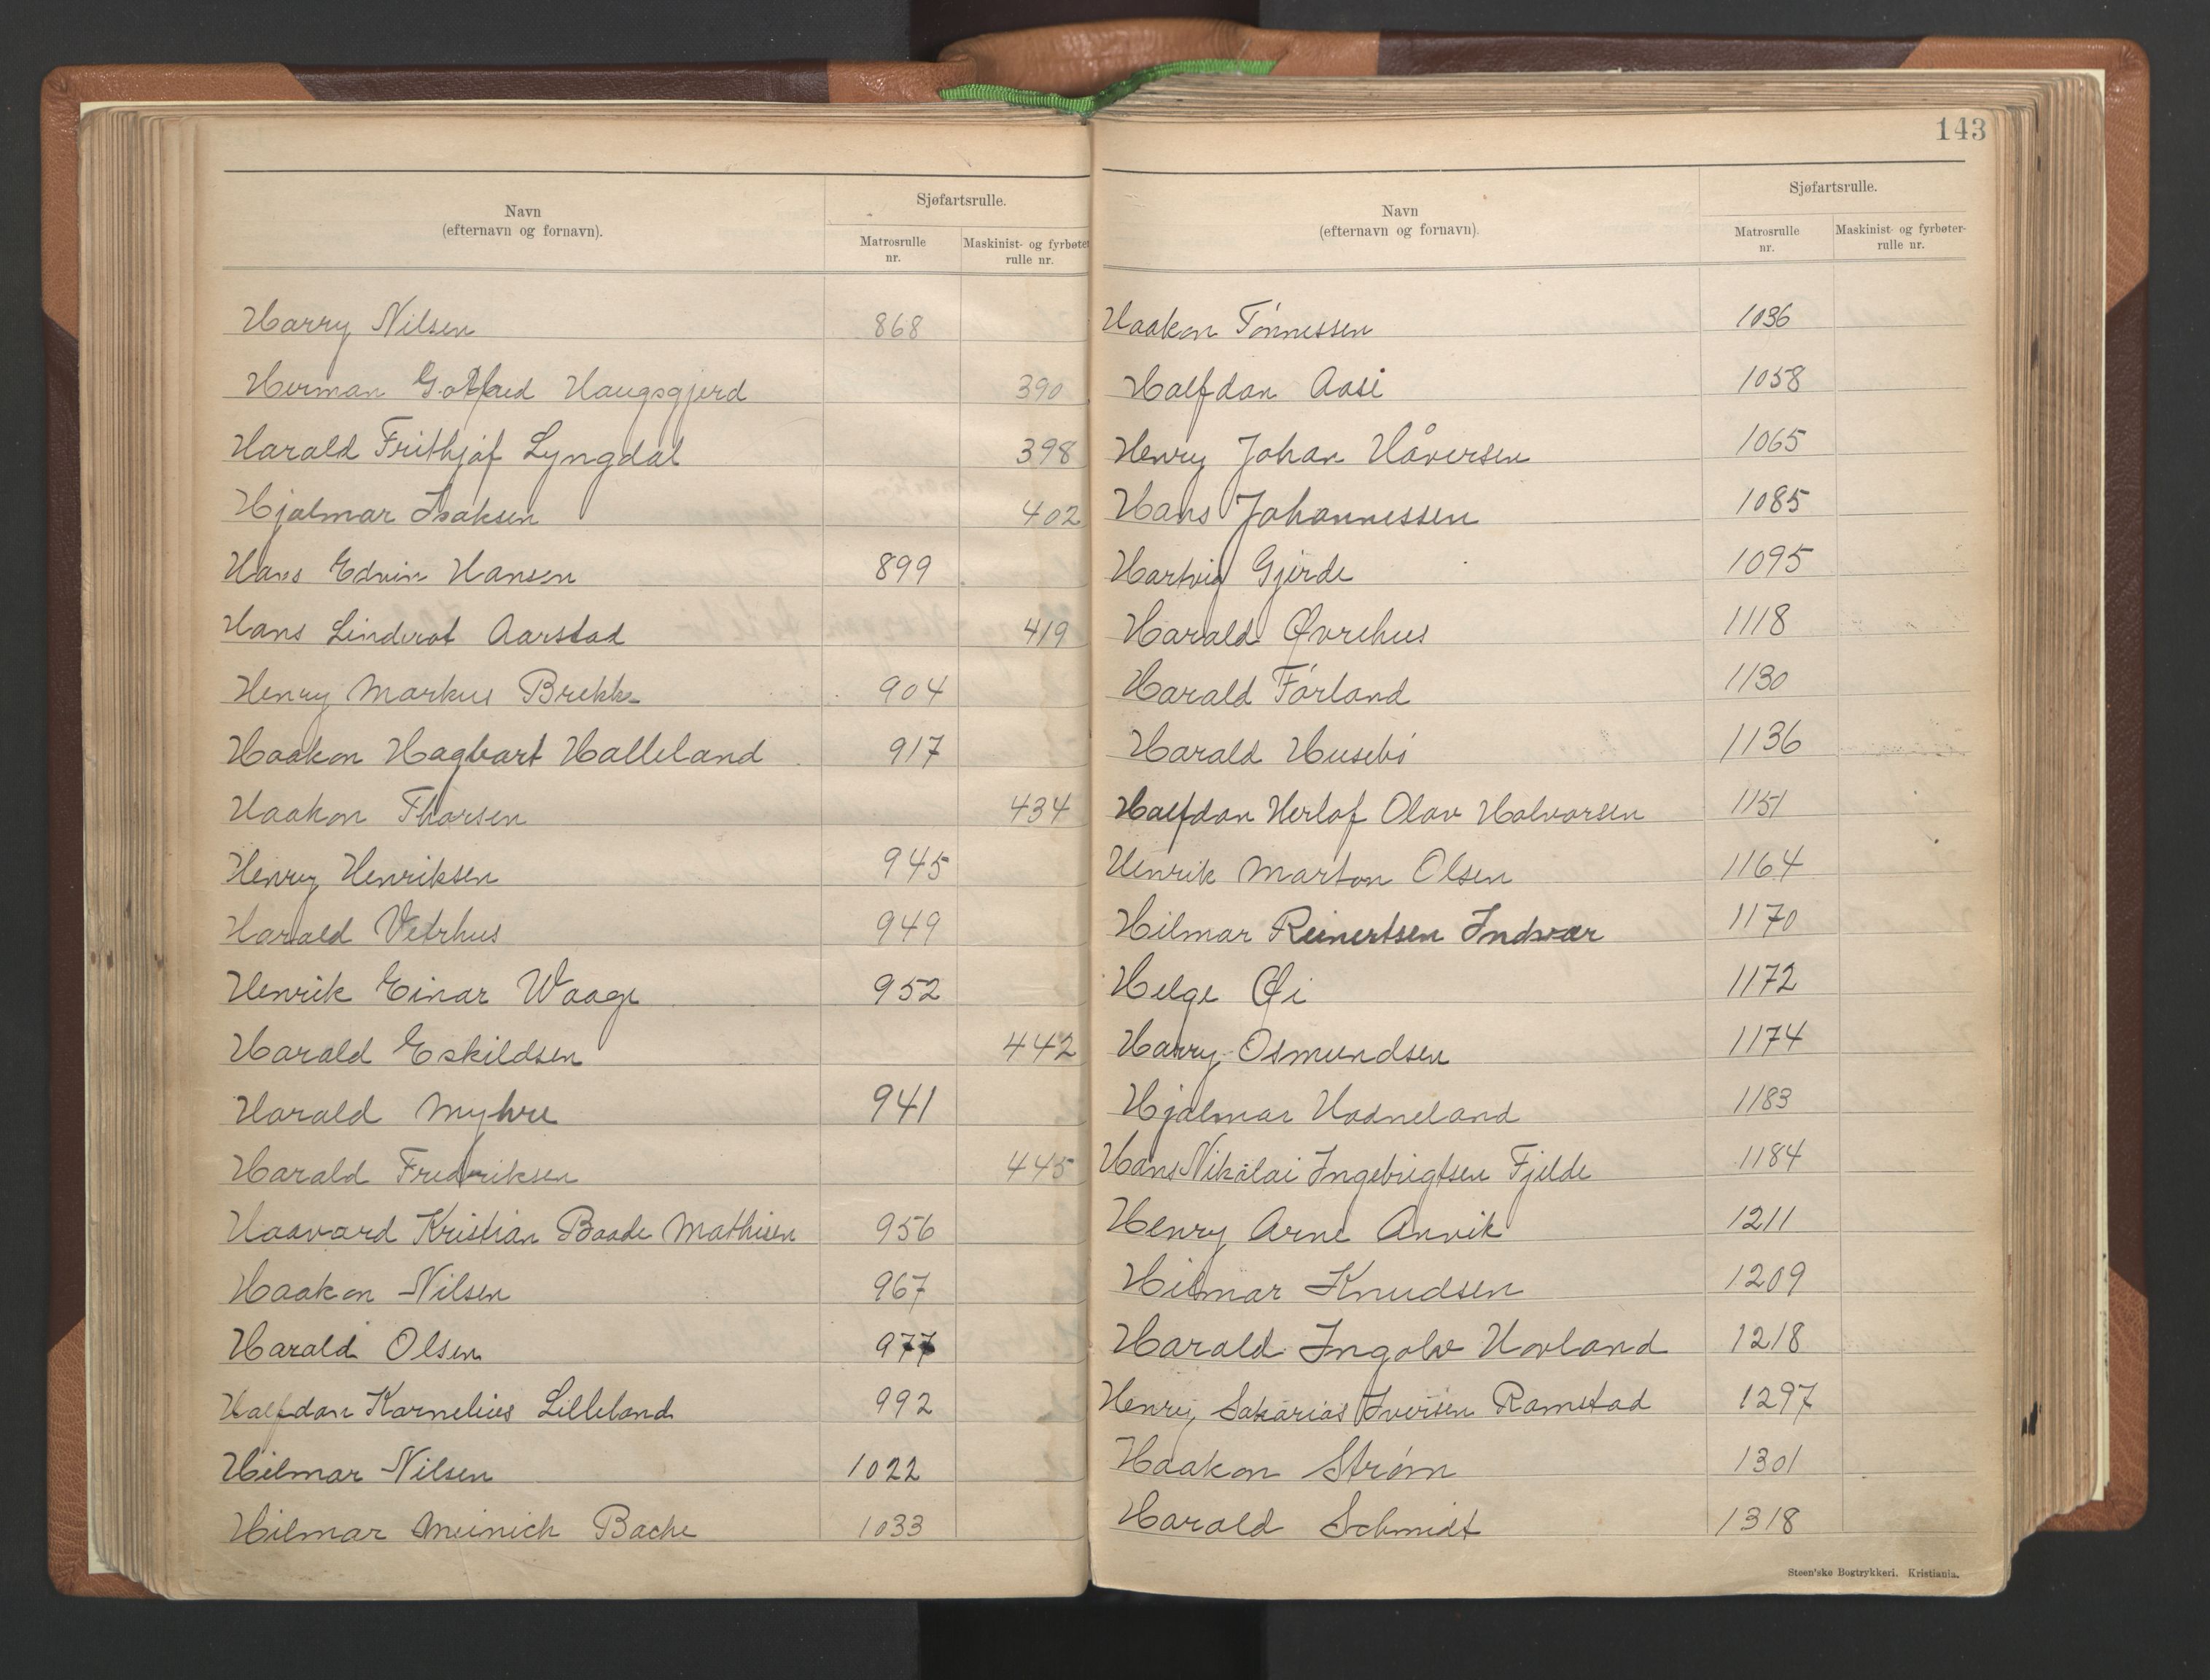 Navn
(efternavn og fornavn).
Sjøfartsrulle.
Matrosrulle
nr.
Maskinist- og fyrbøter
rulle nr.
Harry Nilsen 868
Herman Gottfred Haugsgjerd 390
Harald Frithjof Lyngdal 398
Hjalmar Isaksen 402
Hans Edvin Hansen 899
Hans Linderot Aarstad 419
Henry Markus Brekke 904
Haakon Hagbart Halleland 917
Haakon Thorsen 434
Henry Henriksen 945
Harald Vetrhus 949
Henrik Einar Waage 952
Harald Eskildsen 442
Harald Myhre 941
Harald Fredriksen 445
Haavard Kristian Baade Mathisen 956
Haakon Nilsen 967
Harald Olsen 977
Halfdan Kornelius Lilleland 992
Hilmar Nilsen 1022
Hilmar Meinich Bache 1033
143
Navn
(efternavn og fornavn).
Sjøfartsrulle.
Matrosrulle
nr.
Maskinist- og fyrbøter-
rulle nr.
Haakon Tónnessen 1036
Halfdan Aase 1058
Henry Johan Håversen 1065
Hans Johannessen 1085
Hartvig Gjerde 1095
Harald Øvrehus 1118
Harald Fórland 1130
Harald Husebó 1136
Halfdan Herlof Olav Halvorsen 1151
Henrik Marton Olsen 1164
Hilmar Reinertsen Indvær 1170
Helge Øi 1172
Harry Osmundsen 1174
Hjalmar Hadneland 1183
Hans Nikolai Ingebrigtsen Fjelde 1184
Henry Arne Anvik 1211
Hilmar Knudsen 1209
Harald Ingolv Hovland 1218
Henry Sakarias Iversen Ramstad 1297
Haakon Strøm 1301
Harald Schmidt 1318
Steen'ske Bogtrykkeri. Kristiania.